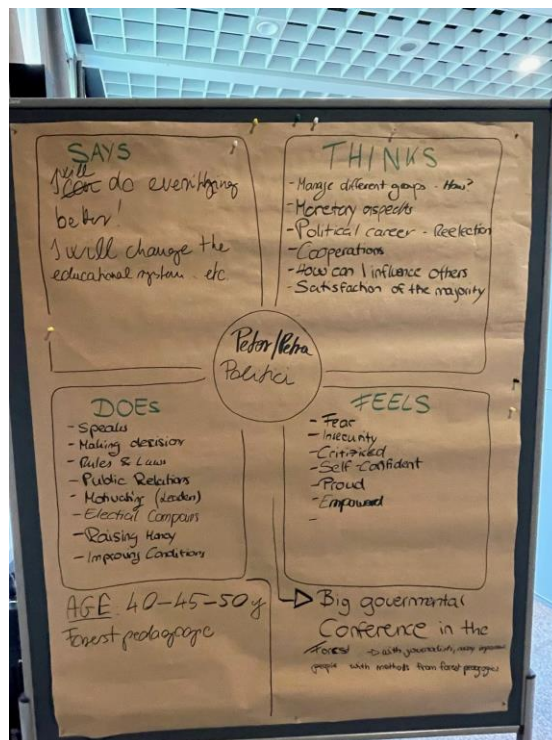 SAYS
I will do everithing
better!
I will change the
educational system. etc.
THINKS
- Manage different groups - How?
- Monetory aspects
- Political career - Reelection
- Cooperations
- How can I influence others
- Satisfaction of the majority
Peter/Petra
Politici
DOES
- Speaks
- Making decision
- Rules & Laws
- Public Relations
- Motivating (Leader)
- Election Compains
- Raising Money
- Improving Conditions
FEELS
- Fear
- Insecurity
- Critizided
- Self-Confident
- Proud
- Empowered
-
AGE. 40-45-50 y
Forest pedagogic
Big governmental
Conference in the
Forest → with journalists, many important
people with methods from forest pedagogics